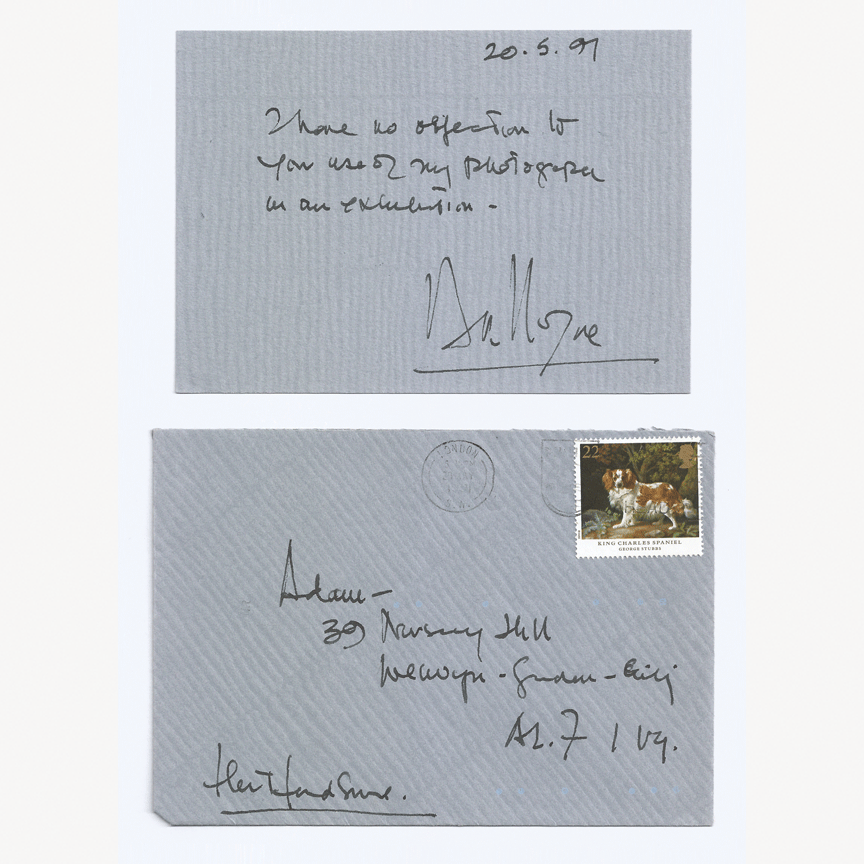 20.5.91
I have no objection to
you use of my photograph
in an exhibition -
LONDON
22
KING CHARLES SPANIEL
GEORGE STUBBS
Adam -
39 Nursery Hill
Welwyn - Garden - City
AL.7 1 
Hertfordshire.